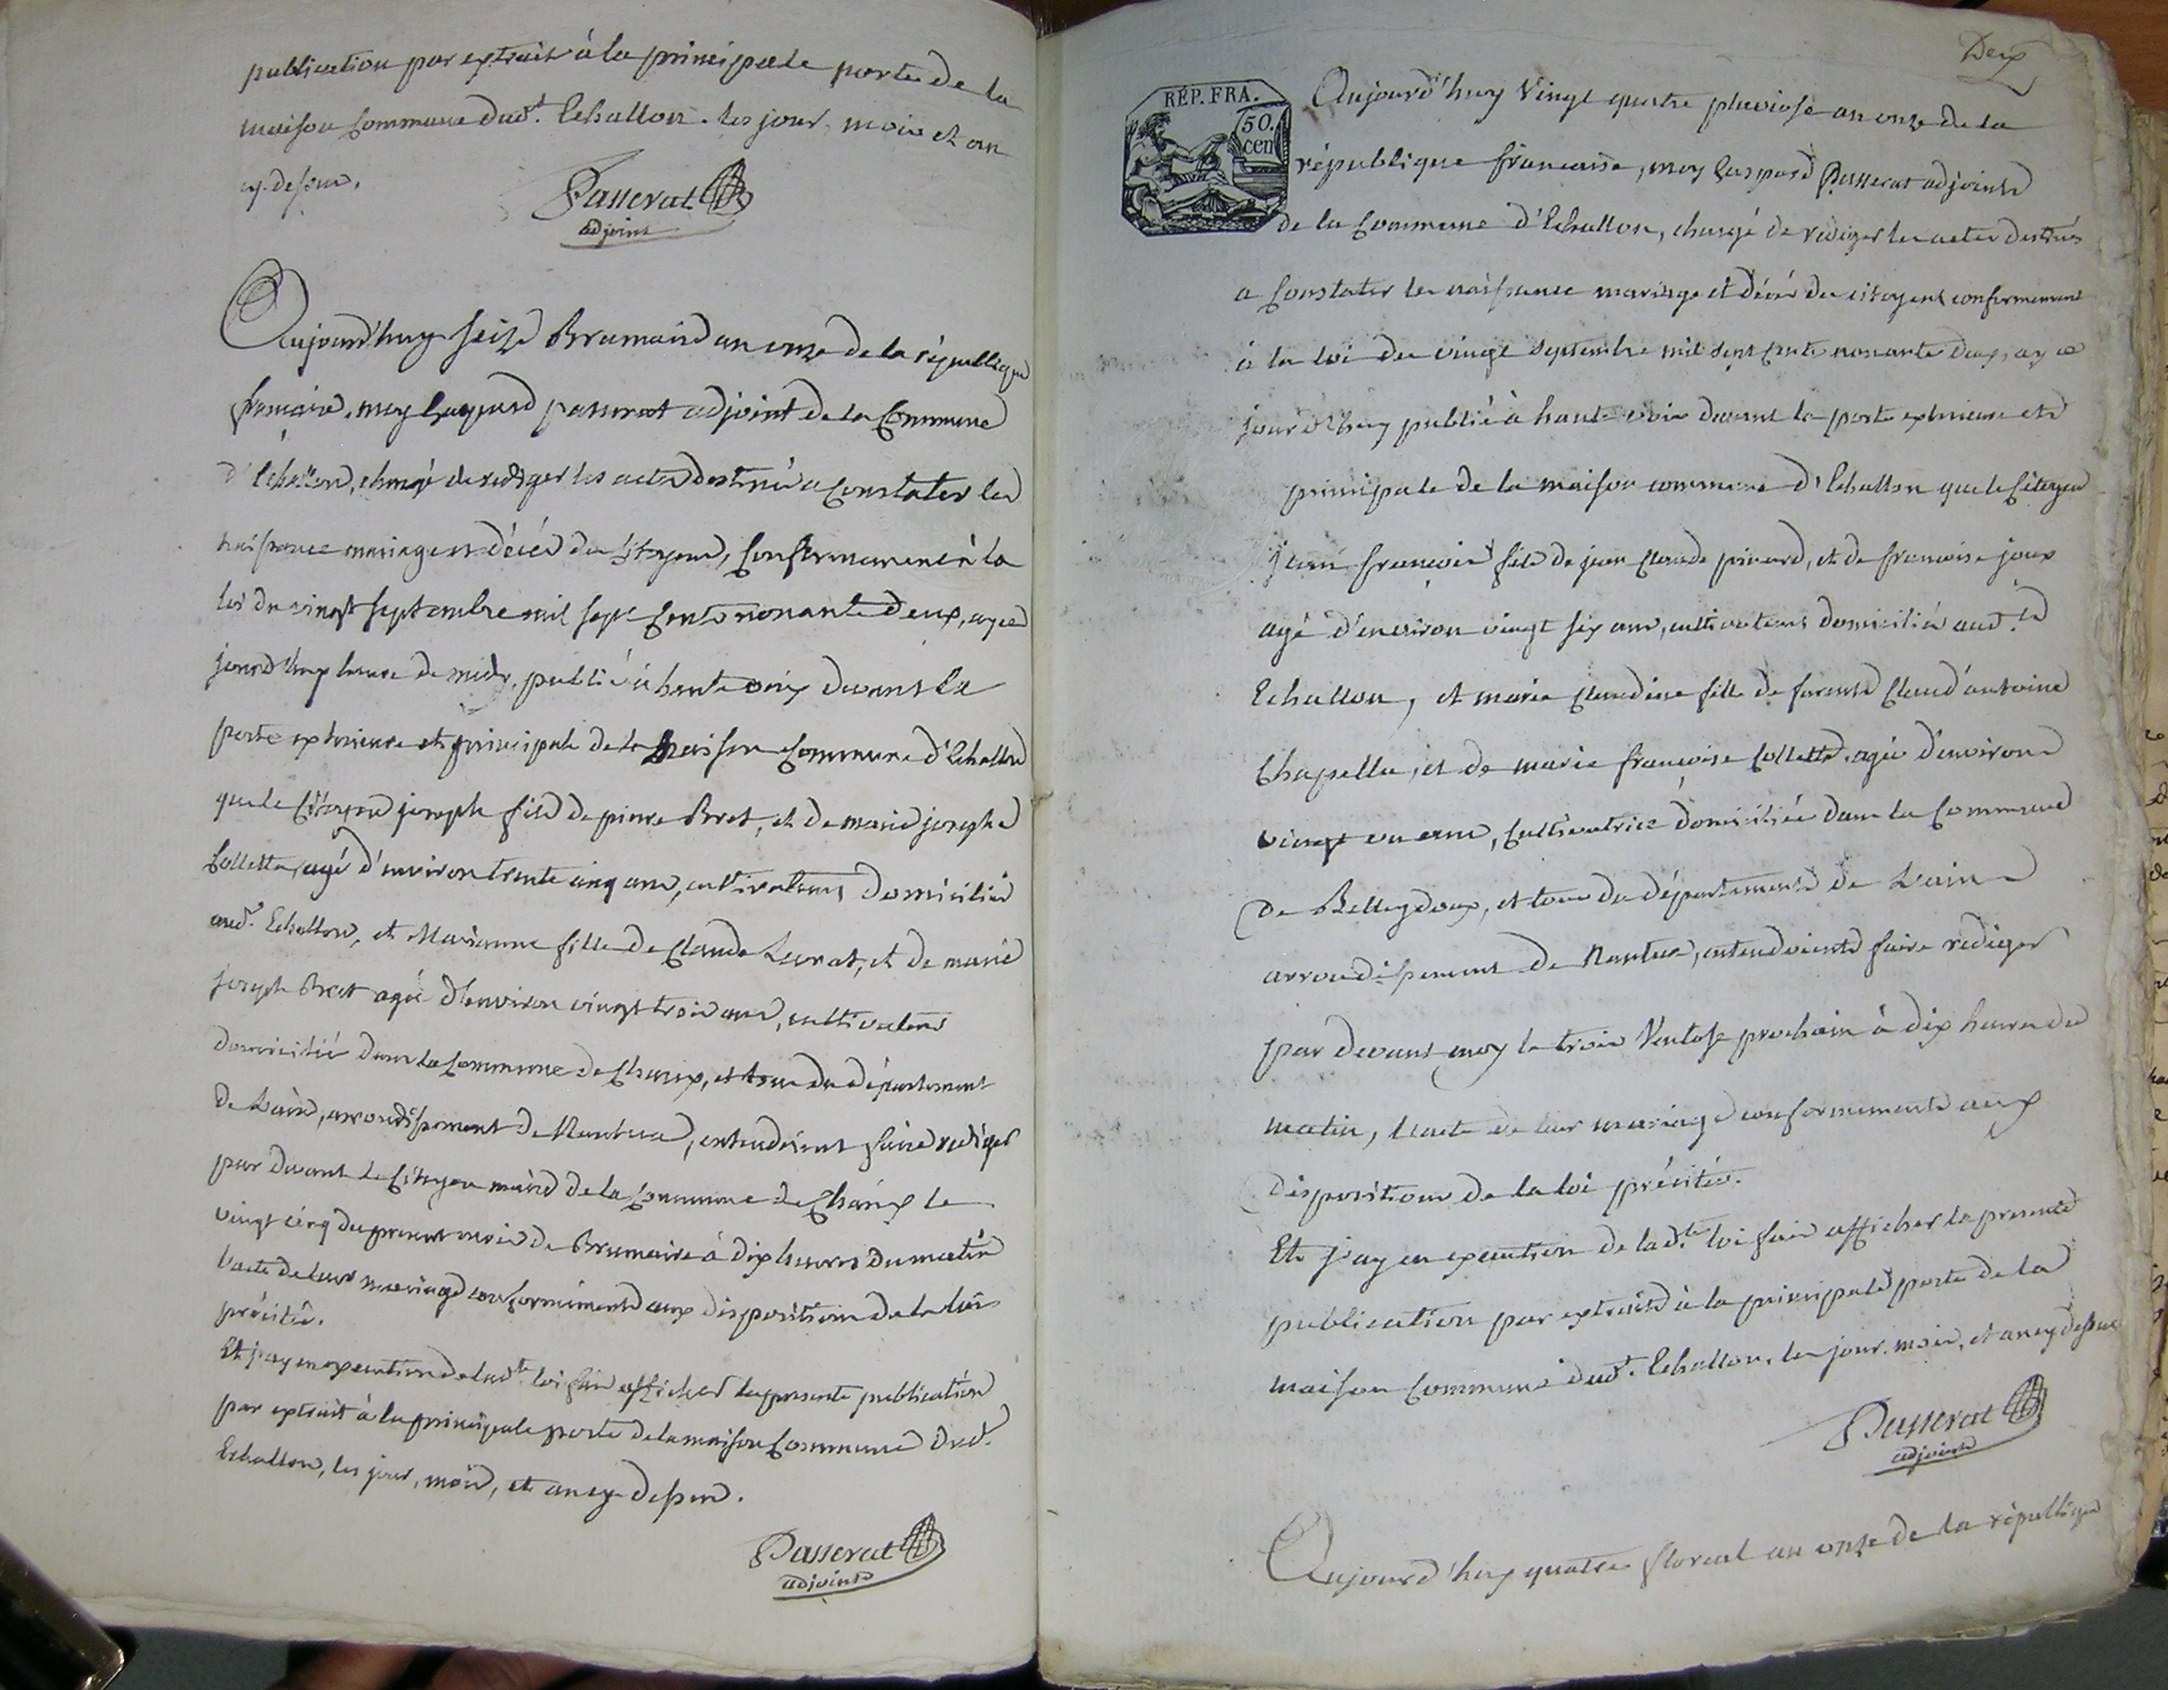 publication par extrait à la principale porte de la
maison Commune dud.t Echallon. les jour, mois et an
cy-dessus.
Passerat
adjoint
Aujourd'huy seize Brumaire an onze de la république
francaise, moy Gaspard passerat adjoint de la Commune
d'Echallon, chargé de rediger les actes destinés a Constater les
naissance mariage et décés des Citoyens, Conformement à la
loi du vingt septembre mil sept Cents nonante deux, ay ce
jourd'huy heure de midy, publié à haute voix devant la
porte exterieure et principale de la Maison Commune d'Echallon
que le Citoyen joseph fils de pierre Bret, et de marie josephe
Collette, agé d'environ trente cinq ans, cultivateur domicilié
aud.t Echallon, et Marianne fille de Claude Levrat, et de marie
joseph Bret agée d'environ vingt trois ans, cultivateur
domiciliée dans la Commune de Charix, et tous du département
de L'ain, arrondissement de Nantua, entendoient faire rediger
par devant le Citoyen maire de la Commune de Charix le
vingt cinq du present mois de Brumaire à dix heures du matin
l'acte de leur mariage conformement aux dispositions de la loi
précitée.
Et j'ay en execution de lad.te loi fait afficher la presente publication
par extrait à la principale porte de la maison Commune dud.t
Echallon, les jour, mois, et an cy-dessus.
Passerat
adjoint
Deux
RÉP. FRA.
50.
cen
Aujourd'huy Vingt quatre pluviose an onze de la
république francaise, moy Gaspard Passerat adjoint
de la Commune d'Echallon, chargé de rediger les actes destinés
a Constater les naissance mariage et décés des citoyens conformement
à la loi du vingt septembre mil sept Cents nonante deux, ay ce
jourd'huy publié à haute voix devant la porte exterieure et
principale de la maison commune d'Echallon que le Citoyen
jean françois fils de jean Claude prinard, et de francoise joux
agé d'environ vingt six ans, cultivateur domicilié aud.t
Echallon, et marie Claudine fille de Claud'antoine
Chapelle, et de marie françoise Collette, agée d'environ
vingt un ans, Cultivatrice domiciliée dans la Commune
de Belleydoux, et tous du département de L'ain
arrondissement de Nantua, entendoient faire rediger
par devant moy le trois Ventose prochain à dix heures du
matin, l'acte de leur mariage conformement aux
dispositions de la loi précitée.
Et j'ay en execution de lad.te loi fait afficher la presente
publication par extrait à la principale porte de la
maison Commune dud.t Echallon, les jour, mois, et an cy dessus
Passerat
adjoint
Aujourd'huy quatre floreal an onze de la république